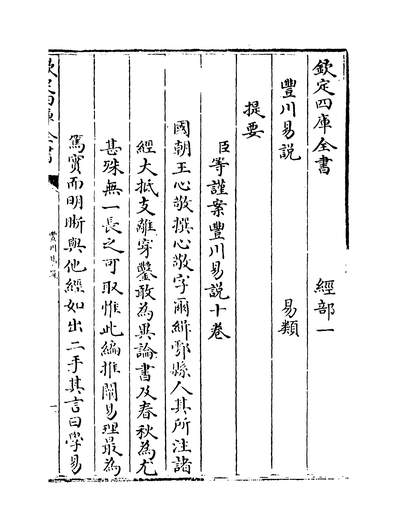 欽定四庫全書　　　經部一
豐川易說　　　易類
提要
臣等謹案豐川易說十卷
國朝王心敬撰心敬字爾緝鄠縣人其所注諸
經大抵支離穿鑿敢為異論書及春秋為尤
甚殊無一長之可取惟此編推闡易理最為
篤實而明晰與他經如出二手其言曰學易
欽定四庫全書
豐川易說